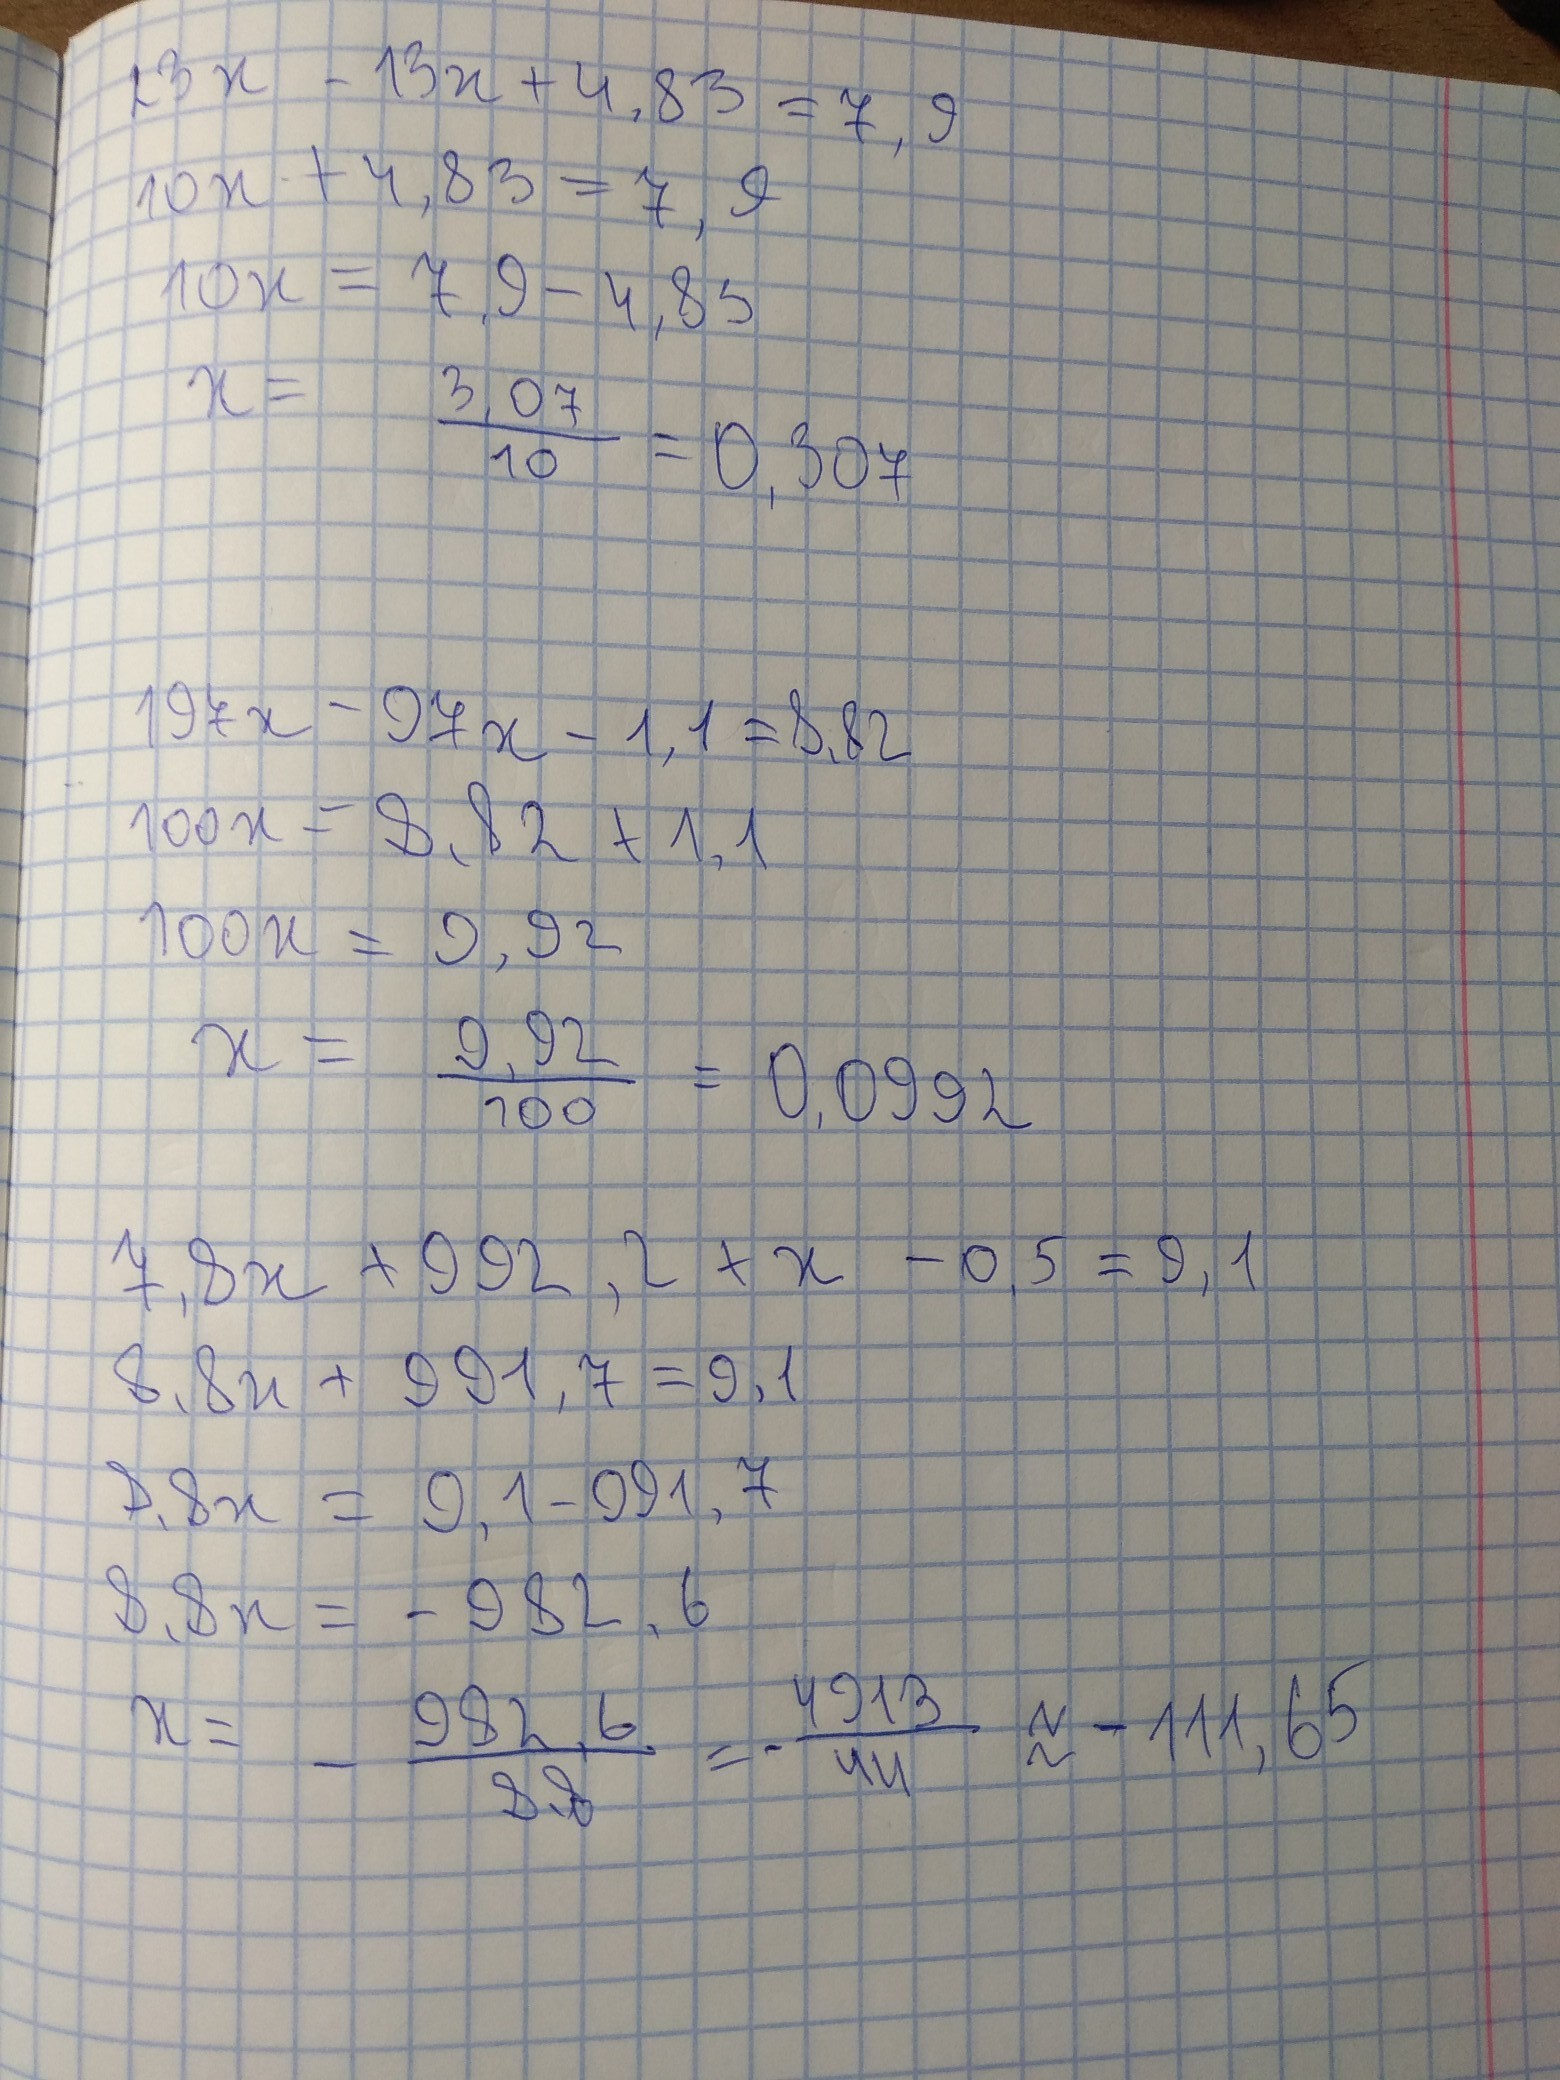 23x - 13x + 4,83 = 7,9
10x + 4,83 = 7,9
10x = 7,9 - 4,83
x = 3,07/10 = 0,307
197x - 97x - 1,1 = 8,82
100x = 8,82 + 1,1
100x = 9,92
x = 9,92/100 = 0,0992
7,8x + 992,2 + x - 0,5 = 9,1
8,8x + 991,7 = 9,1
8,8x = 9,1 - 991,7
8,8x = -982,6
x = - 982,6/8,8 = - 4913/44 ≈ - 111,65